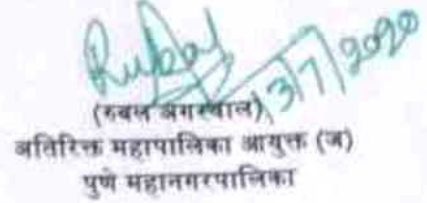 13/7/2020
(रुबल अगरवाल)
अतिरिक्त महापालिका आयुक्त (ज)
पुणे महानगरपालिका